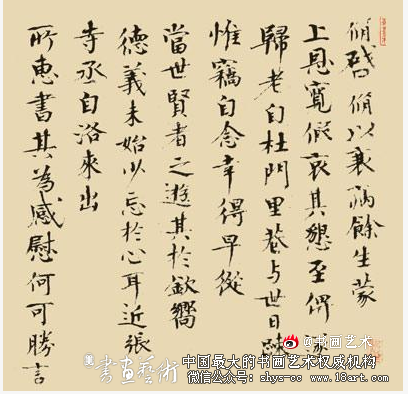 脩啓脩以衰病餘生蒙
上恩寬假哀其懇至俾遂
歸老自杜門里巷与世日疎
惟竊自念幸得早從
當世賢者之遊其於欽嚮
德義未始以忘於心耳近張
寺丞自洛來出
所惠書其為感慰何可勝言
@书画艺术
書畫藝術
中国最大的书画艺术权威机构
微信公众号：shys-cc www.18art.com